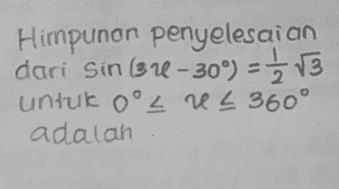 Himpunan penyelesaian
dari sin (3x - 30°) = 1/2 √3
untuk 0° ≤ x ≤ 360°
adalah .